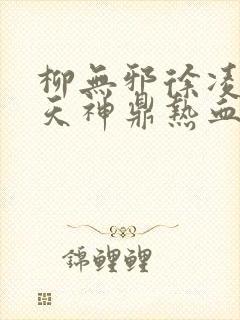 柳無邪徐凌
天神鼎熱血
錦鯉鯉